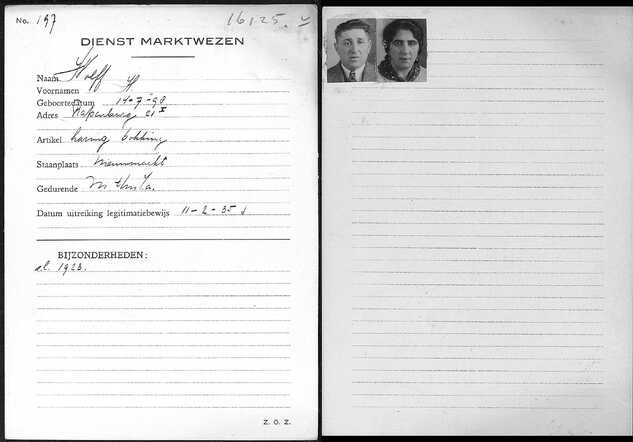 No. 197 16125.
DIENST MARKTWEZEN
Naam Wolff
Voornamen H
Geboortedatum 14-7-98
Adres Rapenburg 21 I
Artikel haring bokking
Staanplaats Nieuwmarkt
Gedurende
Datum uitreiking legitimatiebewijs 11-2-35
BIJZONDERHEDEN:
1923.
Z. O. Z.